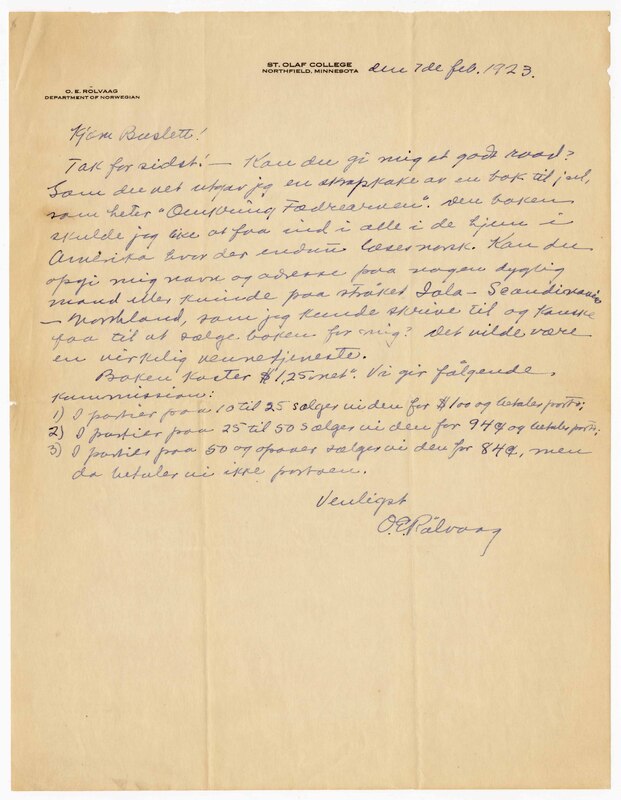 ST. OLAF COLLEGE
NORTHFIELD, MINNESOTA
den 7de feb. 1923.
O. E. ROLVAAG
DEPARTMENT OF NORWEGIAN
Kjære Buslett!
Tak for sidst! — Kan du gi mig et godt raad?
Som du vet utgav jeg en av en bok til jul,
som heter "Omkring Fædrearven". Den boken
skulde jeg like at faa ind i alle i de hjem i
Amerika hvor der endnu læses norsk. Kan du
opgi mig navn og adresse paa nogen dygtig
mand eller kvinde paa strøket Iola - Scandinavia
- Northland, som jeg kunde skrive til og kanske
faa til at sælge boken for mig? Det vilde være
en virkelig vennetjeneste.
Boken koster $1,25 "net". Vi gir følgende
kommission:
1) I partier paa 10 til 25 sælger vi den for $1.00 og betaler porto;
2) I partier paa 25 til 50 sælger vi den for 94¢ og betaler porto;
3) I partier paa 50 og opover sælger vi den for 84¢, men
da betaler vi ikke portoen.
Venligst
O.E. Rölvaag